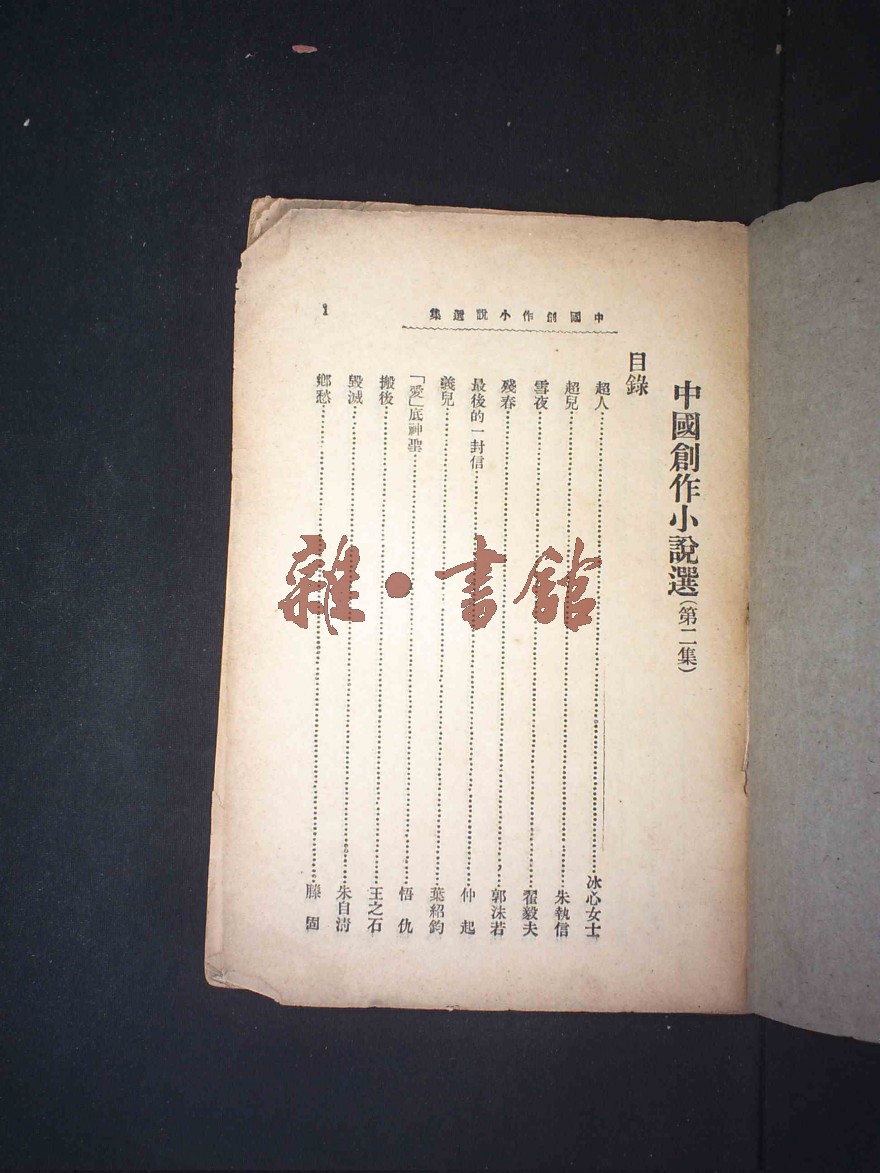 中國創作小說選(第二集)
目錄
中國創作小說選集
超人……冰心女士
超兒……朱執信
雪夜……翟毅夫
殘春……郭沫若
最後的一封信……仲起
義兒……葉紹鈞
「愛」底神聖……悟仇
搬後……王之石
毀滅……朱自清
鄉愁……滕固
1
雜·書館